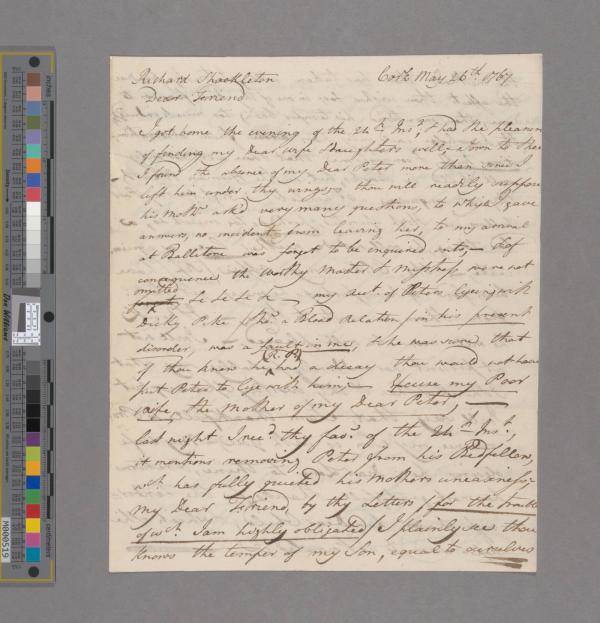 Richard Shackleton Cork May 26th 1767
Dear Friend
I got home the evening of the 24th Inst, & had the pleasure
of finding my Dear wife & Daughters well; & own to thee
I found the absence of my Dear Peter more than since I
left him under thy wings; thou will readily suppose
his Mothr askd very many questions, to which I gave
answers, no incident from leaving her, to my arrival
at Ballitore was forgot to be enquired into; — & of
consequence the worthy Master & Mistress were not
omitted
forgot &c &c &c &c — my acct. of Peters lyeing with
Dicky Pike (tho' a Blood Relation) in his present
disorder, was a fault in me, & she was sure that
(R. P)
if thou knew he had a decay thou would not have
put Peter to lye with him; — Excuse my Poor
wife, the Mother of my Dear Peter, —
last night I recd. thy favr. of the 24th Inst.,
it mentions removing Peter from his Bedfellow,
wch has fully quieted his Mothers uneasiness;
my Dear Friend, by thy Letters (for the trouble
of wch. I am highly obligated) I plainly see thou
knows the temper of my Son, equal to ourselves
inches
centimeters
Don Williams
M000519